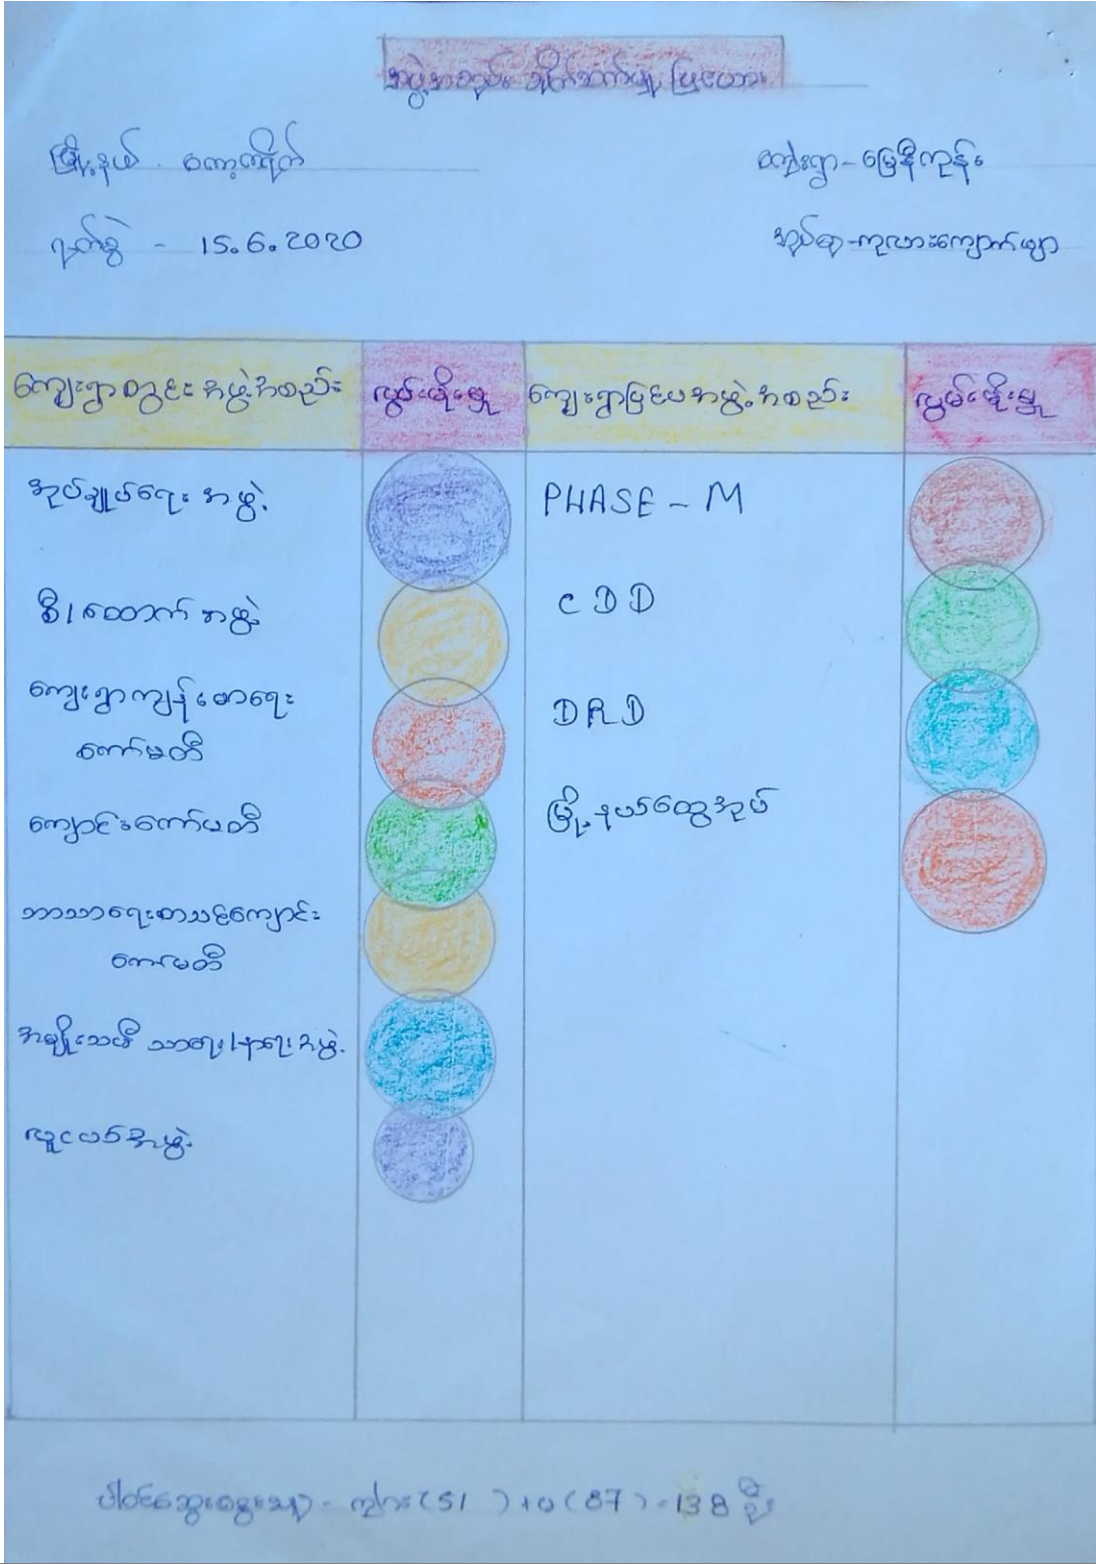 အဖွဲ့အစည်း ချိတ်ဆက်မှု ပြဇယား
မြို့နယ် - ကော့ကရိတ်
ကျေးရွာ - မြေနီကုန်း
ရက်စွဲ - 15.6.2020
အုပ်စု - ကုလားကျောက်ဖျာ
ကျေးရွာတွင်းအဖွဲ့အစည်း လွှမ်းမိုးမှု ကျေးရွာပြင်ပအဖွဲ့အစည်း လွှမ်းမိုးမှု
အုပ်ချုပ်ရေး အဖွဲ့ PHASE - M
စီ/ထောက် အဖွဲ့ CDD
ကျေးရွာကျန်းမာရေး
ကော်မတီ DRD
ကျောင်းကော်မတီ မြို့နယ်ထွေအုပ်
ဘာသာရေးစာသင်ကျောင်း
ကော်မတီ
အမျိုးသမီး သာရေး/နာရေးအဖွဲ့
လူငယ်အဖွဲ့
ပါဝင်ဆွေးနွေးသူ - ကျား (51) + မ (87) = 138 ဦး